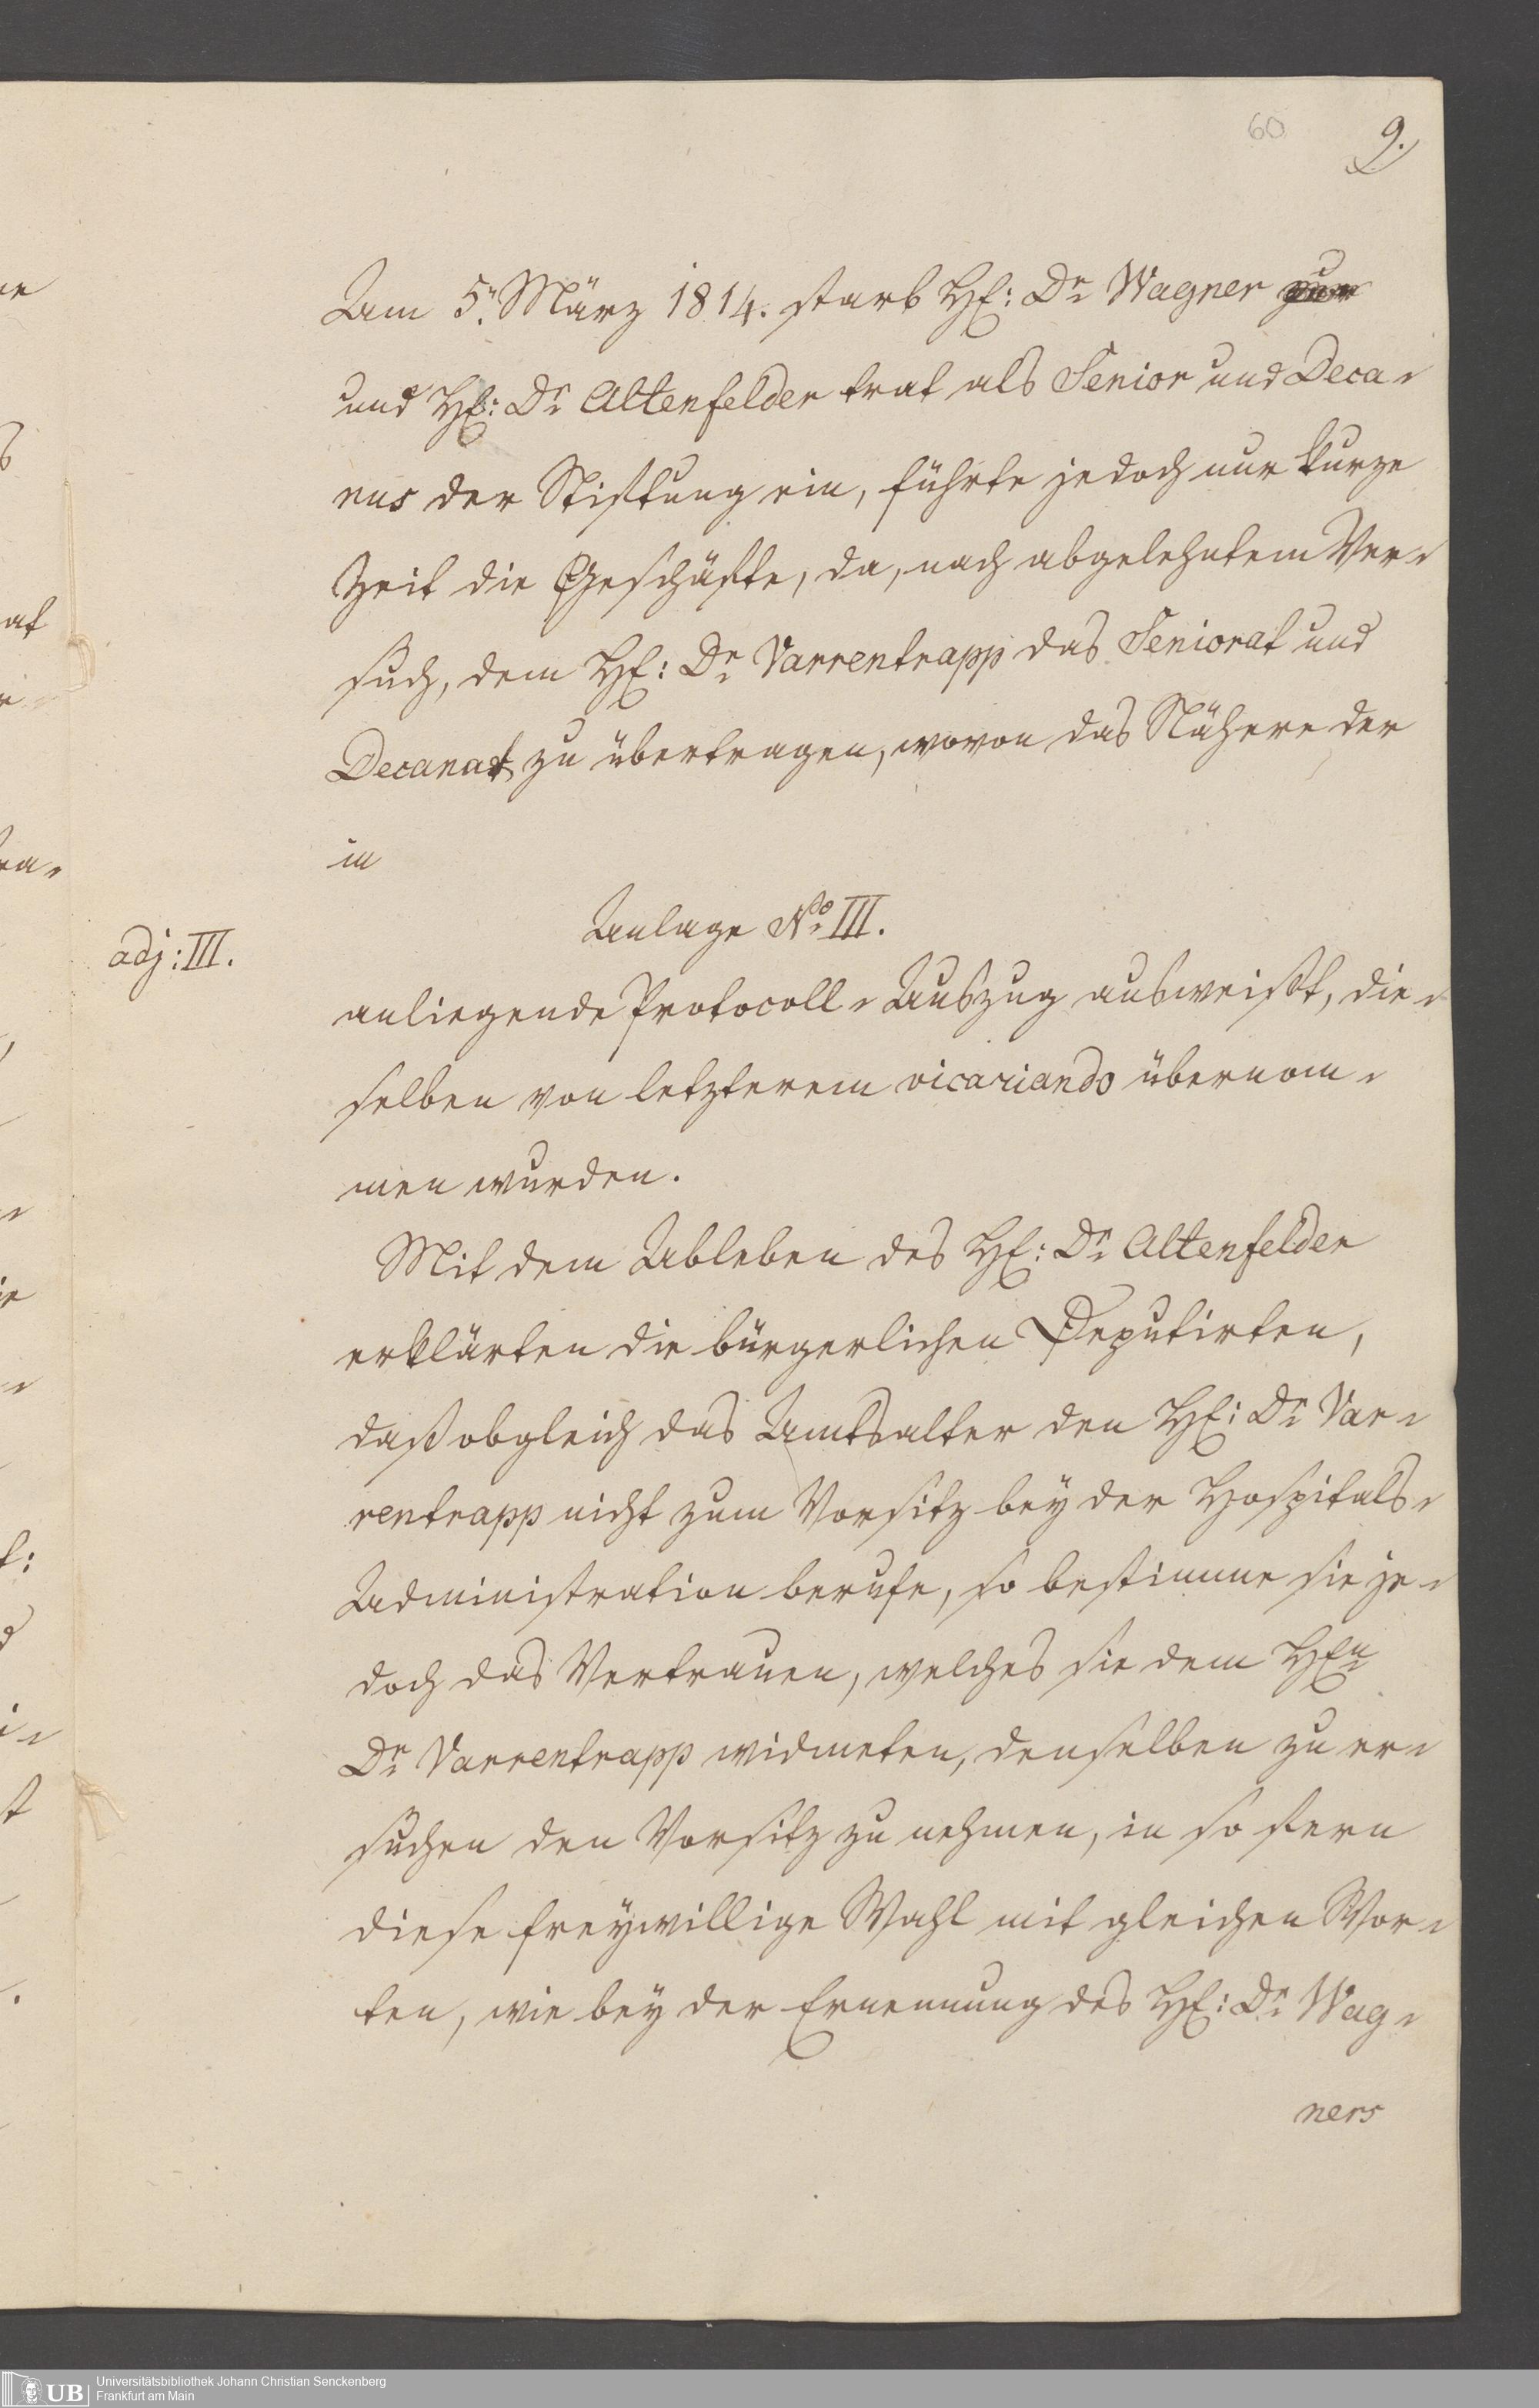 60
9.
Am 5. März 1814. starb H: Dr Wagner
und H: Dr Altenfelder trat als Senior und Deca-
nus der Stiftung ein, führte jedoch nur kurze
Zeit die Geschäfte, da, nach abgelehntem Ver-
such, dem H: Dr Varrentrapp das Seniorat und
Decanat zu übertragen, wovon das Nähere der
in
Anlage No III.
adj: III.
anliegende Protocoll-Auszug ausweißt, die-
selben von letzterem vicariando übernom-
men wurden.
Mit dem Ableben des H: Dr Altenfelder
erklärten die bürgerlichen Deputirten,
daß obgleich das Amtsalter den H: Dr Var-
rentrapp nicht zum Vorsitz bey der Hospitals-
Administration berufe, so bestimme sie je-
doch das Vertrauen, welches sie dem Hrn
Dr Varrentrapp widmeten, denselben zu er-
suchen den Vorsitz zu nehmen, in so fern
diese freywillige Wahl mit gleichen Wor-
ten, wie bey der Ernennung des H: Dr Wag-
ners
UB
Universitätsbibliothek Johann Christian Senckenberg
Frankfurt am Main